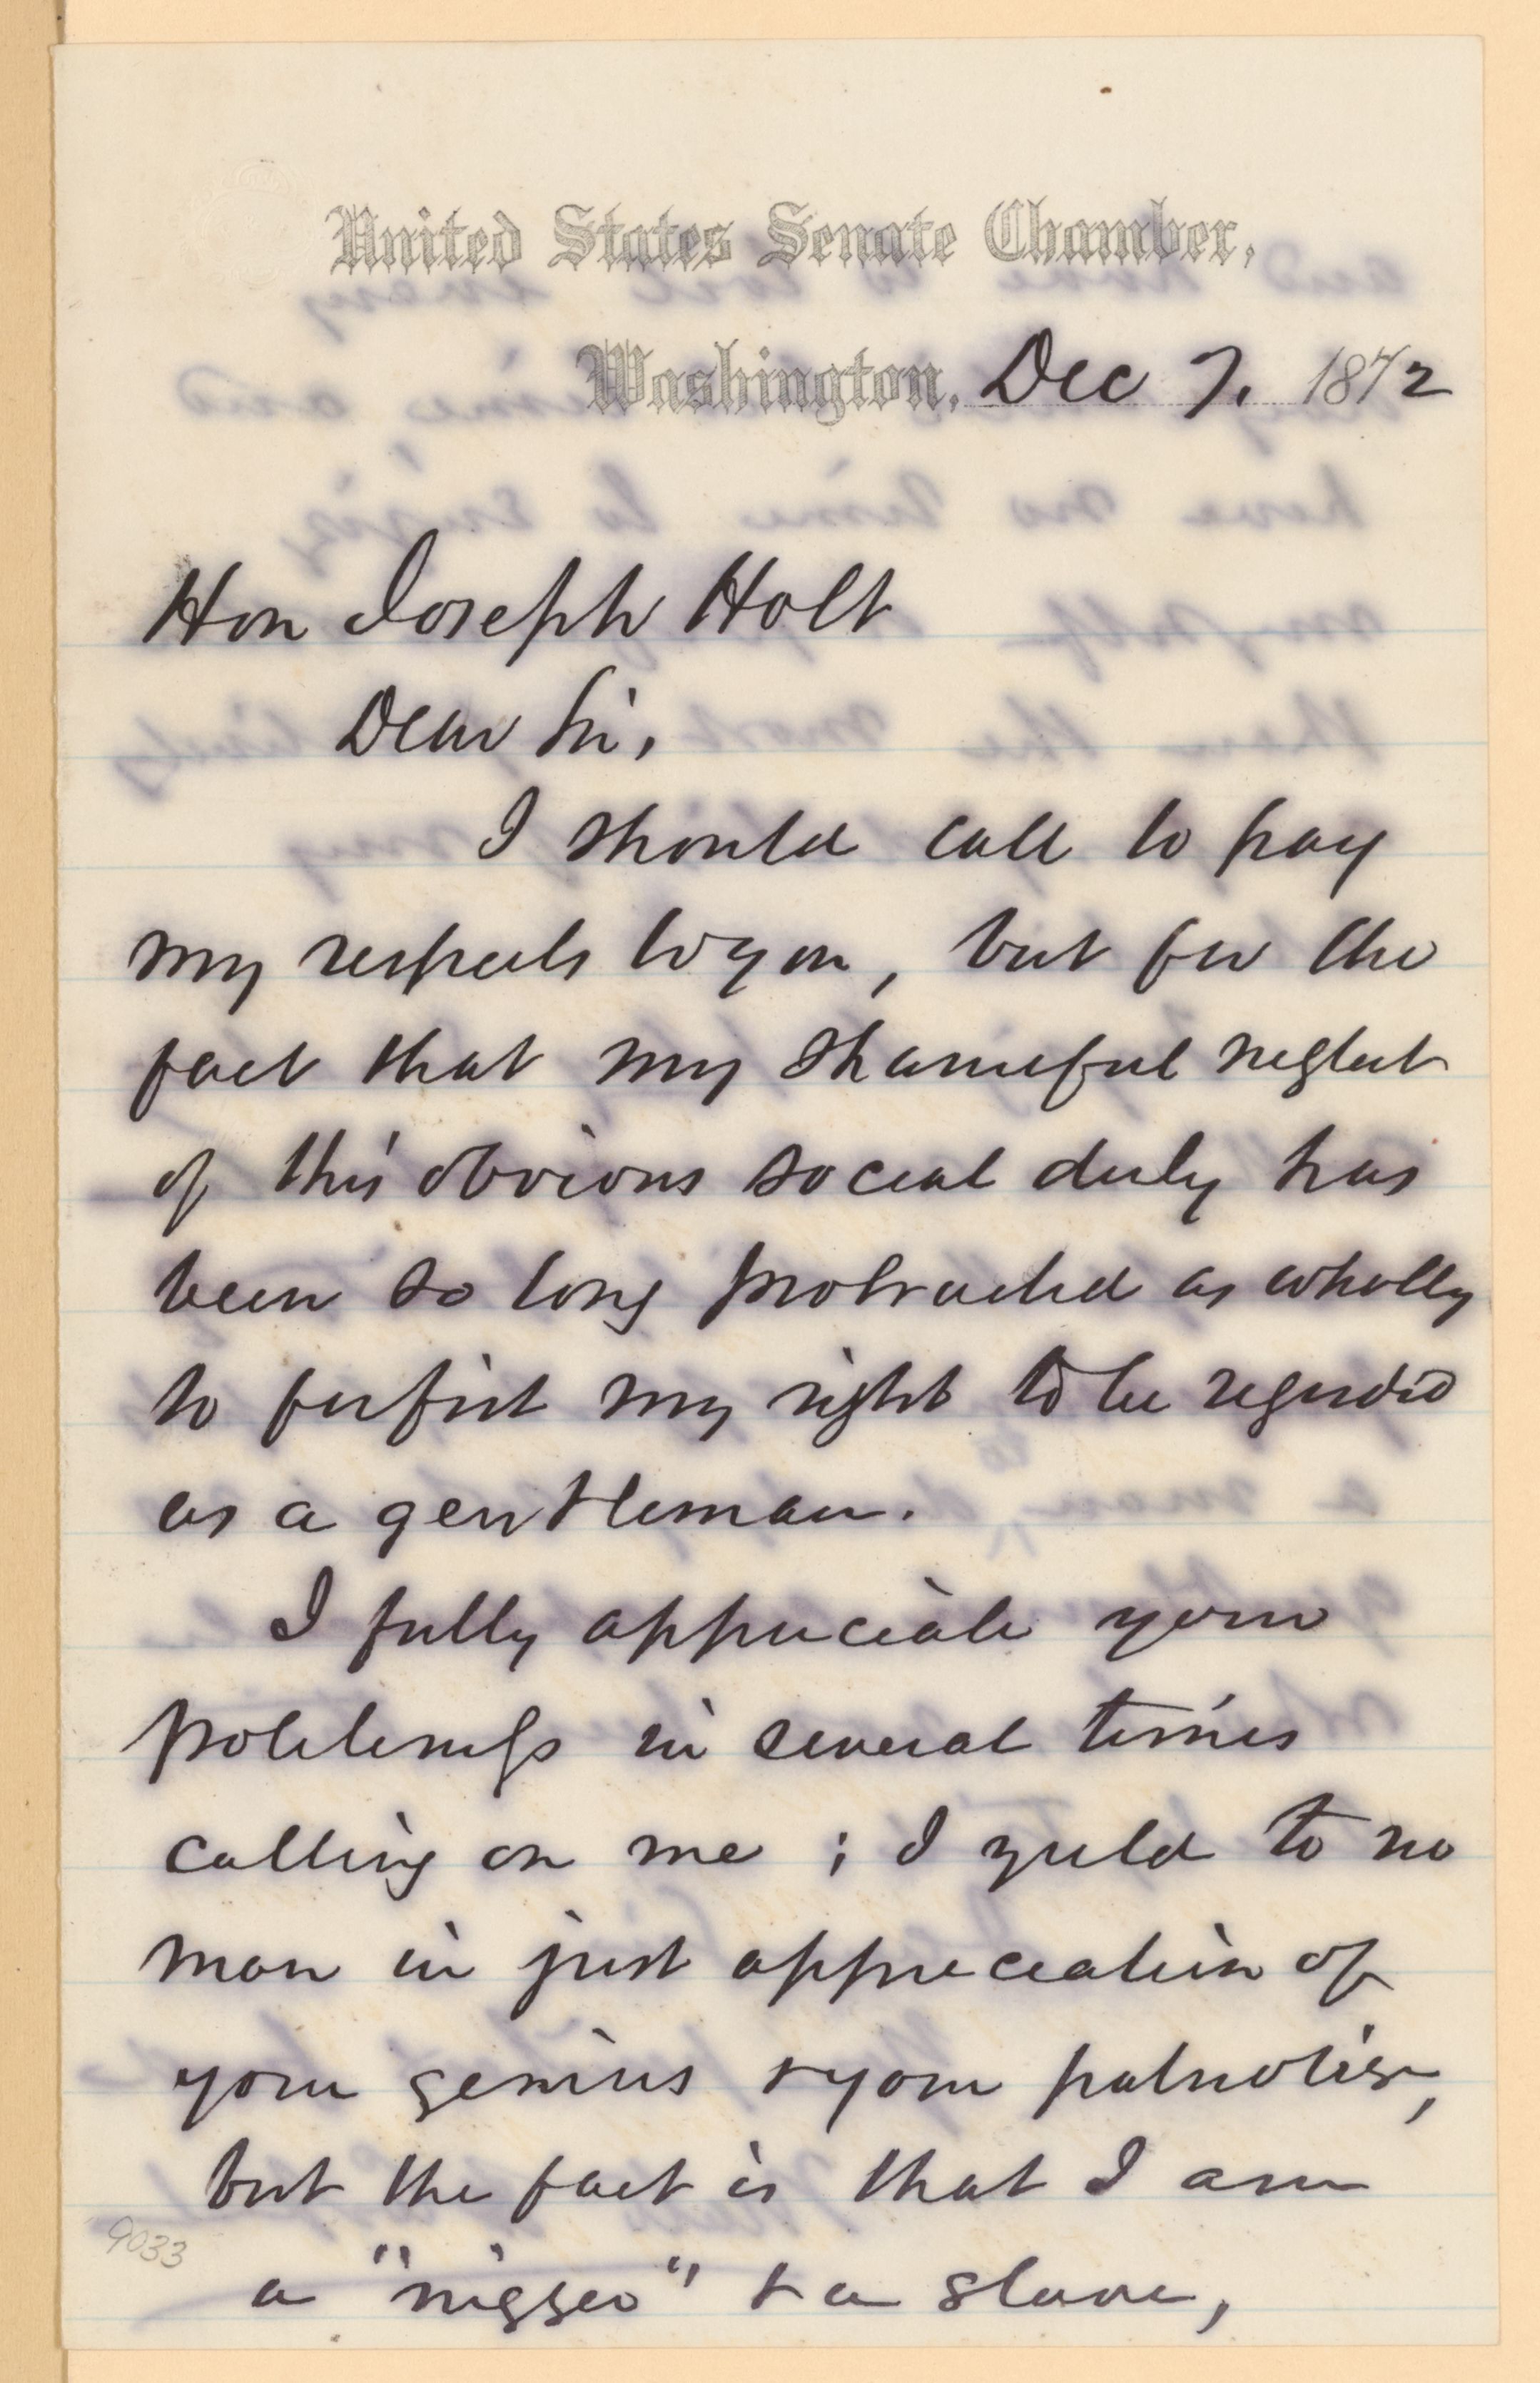 United States Senate Chamber,
Washington, Dec 7. 1872
Hon Joseph Holt
Dear Sir,
I should call to pay
my respects to you, but for the
fact that my shameful neglect
of this obvious social duty has
been so long protracted as wholly
to forfeit my right to be regarded
as a gentleman.
I fully appreciate your
politeness in several times
calling on me; I yield to no
man in just appreciation of
your genius & your patriotism,
but the fact is that I am
a "nigger" & a slave,
9033